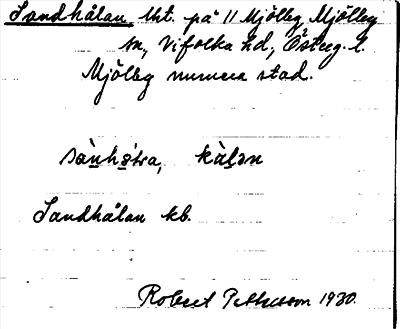 Sandhålan, lht. på 11 Mjölby, Mjölby
sn, Vifolka hd, Österg. l.
Mjölby numera stad.
kàlən
Sandhålan kb.
Robert Pettersson 1930.